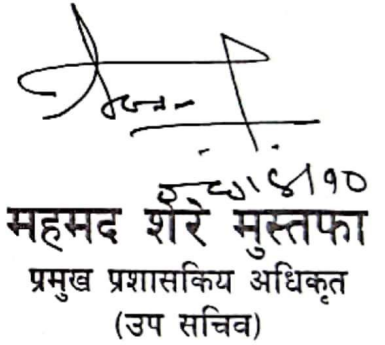 महमद शेरे मुस्तफा
प्रमुख प्रशासकिय अधिकृत
(उप सचिव)